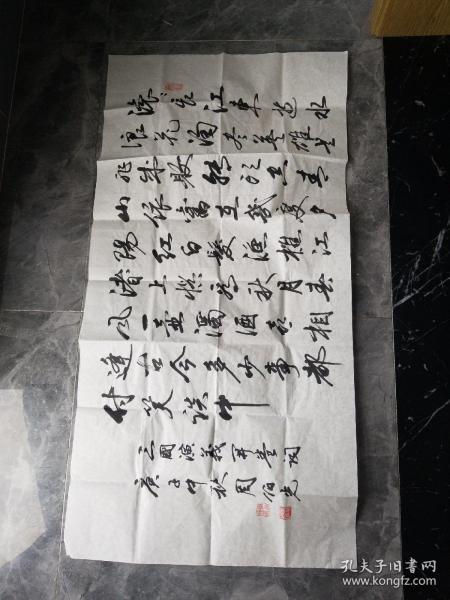 滚滚长江東逝水
浪花淘尽英雄是
非成败转头空青
山依舊在幾度夕
陽红白髮渔樵江
渚上惯看秋月春
风一壶濁酒喜相
逢古今多少事都
付笑谈中
三國演義开篇词
庚子中秋周伯光
孔夫子旧书网
www.kongfz.com